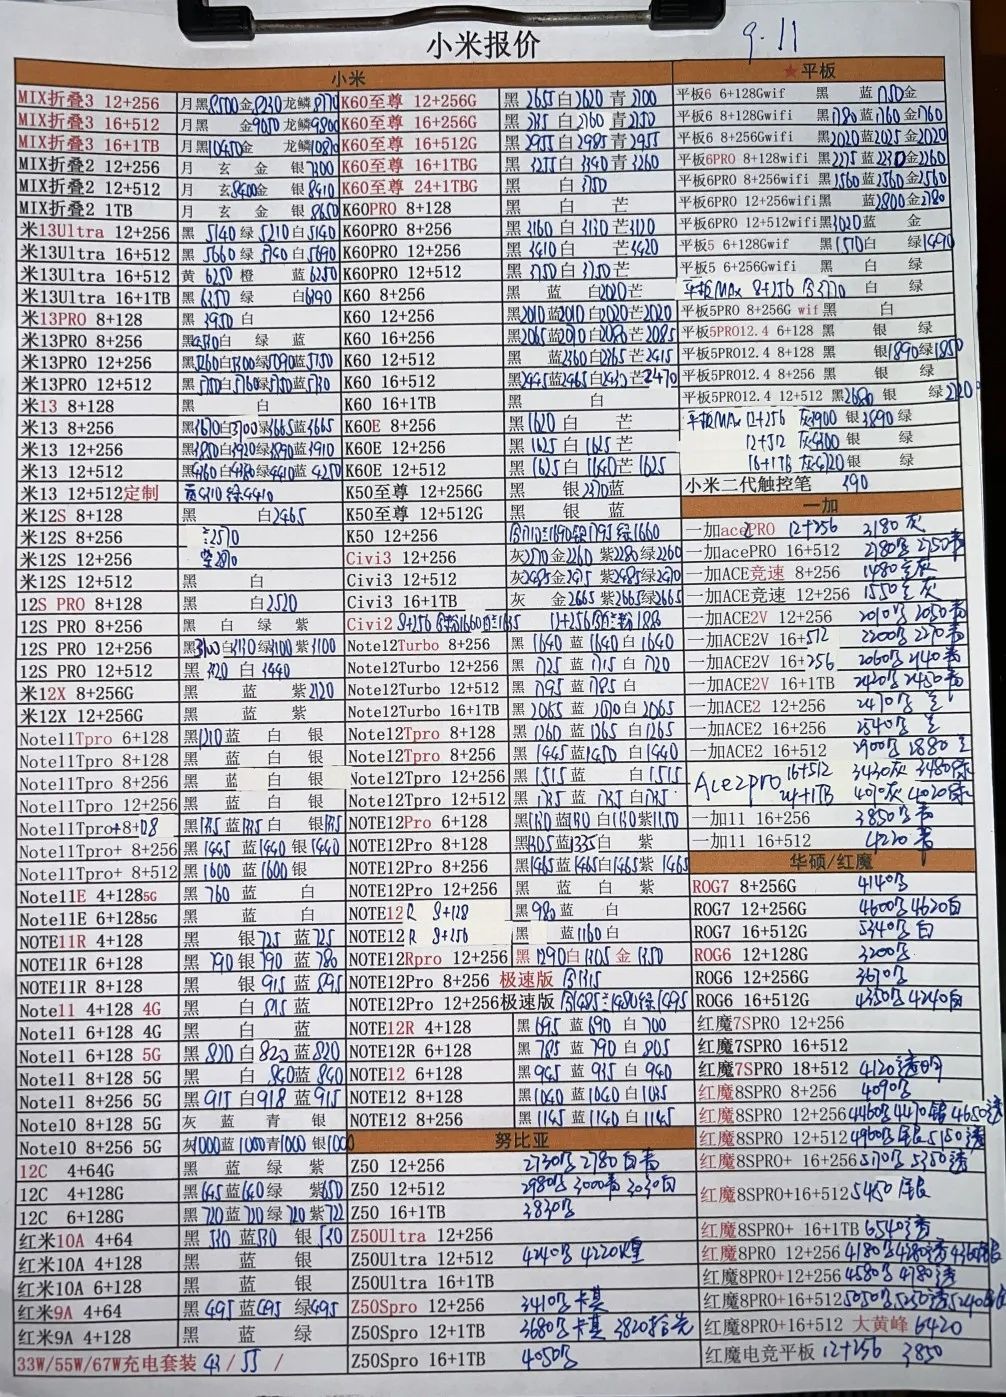 小米报价
9.11
小米
MIX折叠3 12+256 月黑8500金8230龙鳞8770
MIX折叠3 16+512 月黑 金9050龙鳞9800
MIX折叠3 16+1TB 黑10450金 龙鳞10870
MIX折叠2 12+256 月 玄 金 银7300
MIX折叠2 12+512 月 玄8400金 银8410
MIX折叠2 1TB 月 玄 金 银8650
米13Ultra 12+256 黑 5140 绿 5210白5140
米13Ultra 16+512 黑 5660 绿 5740白5690
米13Ultra 16+512 黄 6250 橙 蓝 6250
米13Ultra 16+1TB 黑6350 绿 白6390
米13PRO 8+128 黑 3950 白
米13PRO 8+256 黑4330白 绿 蓝
米13PRO 12+256
米13PRO 12+512
米13 8+128 黑 白
米13 8+256 黑3670白3700绿3665蓝3665
米13 12+256 黑3850白3920绿3890蓝3910
米13 12+512 黑4360白4380绿4410蓝4250
米13 12+512定制
米12S 8+128 黑 白2465
米12S 8+256 2570
米12S 12+256
米12S 12+512 黑 白
12S PRO 8+128 黑 白2520
12S PRO 8+256 黑 白 绿 紫
12S PRO 12+256 黑3100白3130绿3100紫3100
12S PRO 12+512 黑 3420 白 3440
米12X 8+256G 黑 蓝 紫2120
米12X 12+256G 黑 蓝 紫
Note11Tpro 6+128 黑1210蓝 白 银
Note11Tpro 8+128 黑 蓝 白 银
Note11Tpro 8+256 黑 蓝 白 银
Note11Tpro 12+256 黑 蓝 白 银
Note11Tpro+8+128 黑1335蓝1335白 银1335
Note11Tpro+ 8+256 黑1445 蓝1440 银1440
Note11Tpro+ 8+512 黑1600 蓝1600银
Note11E 4+1285G 黑 760 蓝 白
Note11E 6+1285G 黑 蓝 白
NOTE11R 4+128 黑 银725 蓝725
NOTE11R 6+128 黑 790 银 790 蓝 780
NOTE11R 8+128 黑 银 915 蓝 895
Note11 4+128 4G 黑 白 815 蓝
Note11 6+128 4G 黑 白 蓝
Note11 6+128 5G 黑 820 白 820 蓝820
Note11 8+128 5G 黑 白 840蓝 840
Note11 8+128 5G 黑 915 白918 蓝 915
Note10 8+128 5G 灰 蓝 青 银
Note10 8+256 5G 灰1000蓝1000青1000 银1000
12C 4+64G 黑 蓝 绿 紫
12C 4+128G 黑645蓝640 绿 紫650
12C 6+128G 黑720蓝720绿720紫722
红米10A 4+64 黑 530 蓝530 银 530
红米10A 4+128 黑 蓝 银
红米10A 6+128 黑 蓝 银
红米9A 4+64 黑 495 蓝495 绿495
红米9A 4+128 黑 蓝 绿
33W/55W/67W充电套装 43 / 55 /
K60至尊 12+256G 黑 2655白2620 青2700
K60至尊 16+256G 黑 2735 白2760 青2750
K60至尊 16+512G 黑 2955白2985青2955
K60至尊 16+1TBG 黑 3255白3340青3260
K60至尊 24+1TBG 黑 白3750
K60PRO 8+128 黑 白 芒
K60PRO 8+256 黑3160白3130芒3120
K60PRO 12+256 黑3410白 芒3420
K60PRO 12+512 黑3750白3750芒
K60 8+256 黑 蓝 白2020芒
K60 12+256 黑2010蓝2010白2020芒2020
K60 16+256 黑2065蓝2070白2080芒2085
K60 12+512 黑 蓝2360白2365芒2415
K60 16+512 黑2445蓝2465白2432芒2470
K60 16+1TB 黑 白
K60E 8+256 黑1620 白 芒
K60E 12+256 黑1625 白1625 芒
K60E 12+512 黑1625 白1640芒1625
K50至尊 12+256G 黑 银2370蓝
K50至尊 12+512G 黑 银 蓝
K50 12+256
Civi3 12+256 灰2270金2260 紫2280绿2260
Civi3 12+512 灰2485金2475 紫2485绿2470
Civi3 16+1TB 灰 金2665 紫2665绿2665
Civi2
Note12Turbo 8+256 黑 1640 蓝 1640 白 1640
Note12Turbo 16+256 黑 1725 蓝 1715 白 1720
Note12Turbo 12+512 黑 1795 蓝1785 白
Note12Turbo 16+1TB 黑 2065 蓝 2070 白2065
Note12Tpro 8+128 黑 1260 蓝 1265 白 1265
Note12Tpro 8+256 黑 1445 蓝1450 白1440
Note12Tpro 12+256 黑 1515 蓝 白1515
Note12Tpro 12+512 黑 1735 蓝1735 白1735
NOTE12Pro 6+128 黑1130蓝1130白1130紫1150
NOTE12Pro 8+128 黑1305蓝1335白 紫
NOTE12Pro 8+256 黑1465蓝1465白1465紫 1465
NOTE12Pro 12+256 黑 蓝 白 紫
NOTE12 R 8+128 黑 980 蓝 白
NOTE12 R 8+256 黑 蓝1160白
NOTE12Rpro 12+256 黑1290白1305 金 1350
NOTE12Pro 8+256 极速版 白1315
NOTE12Pro 12+256极速版
NOTE12R 4+128 黑 695 蓝 690 白 700
NOTE12R 6+128 黑 785 蓝 790 白 805
NOTE12 6+128 黑 945 蓝 935 白 940
NOTE12 8+128 黑1040 蓝1040 白1035
NOTE12 8+256 黑1145 蓝1140 白1145
努比亚
Z50 12+256 2730黑 2780白青
Z50 12+512 2980黑 3000青 3030白
Z50 16+1TB 3830黑
Z50Ultra 12+256
Z50Ultra 12+512 4240黑 4220煌
Z50Ultra 16+1TB
Z50Spro 12+256 3410黑卡其
Z50Spro 12+1TB 3680黑卡其 3820拾光
Z50Spro 16+1TB 4050黑
★平板
平板6 6+128Gwif 黑 蓝1750金
平板6 8+128Gwifi 黑1780蓝1760金1760
平板6 8+256Gwifi 黑2020蓝2025金2020
平板6PRO 8+128wifi 黑2275蓝2230金2260
平板6PRO 8+256wifi 黑2560蓝2560金2560
平板6PRO 12+256wifi黑 蓝2800金2780
平板6PRO 12+512wifi黑3020蓝 金
平板5 6+128Gwif 黑1510白 绿1490
平板5 6+256Gwifi 黑 白 绿
平板MAX 8+256 白3770 白 绿
平板5PRO 8+256G wif黑 白
平板5PRO12.4 6+128 黑 银 绿
平板5PRO12.4 8+128 黑 银1890绿1850
平板5PRO12.4 8+256 黑 银 绿
平板5PRO12.4 12+512 黑2680 银 绿2720
平板MAX 12+256 灰3900 银3890 绿
12+512 灰4300 银 绿
16+1TB 灰4720银 绿
小米二代触控笔 390
一加
一加ace2PRO 12+256 3180 灰
一加acePRO 16+512 2780黑 2750青
一加ACE竞速 8+256 1480 灰
一加ACE竞速 12+256 1550 灰
一加ACE2V 12+256 2010黑 2050青
一加ACE2V 16+512 2200黑 2270青
一加ACE2V 16+256 2060黑 2140青
一加ACE2V 16+1TB 2420黑 2450青
一加ACE2 12+256 2470黑
一加ACE2 16+256 2540黑
一加ACE2 16+512 2900黑 2880
Ace2pro 16+512 3430灰 3480绿
24+1TB 4010灰 4020绿
一加11 16+256 3850黑 青
一加11 16+512 4220 青
华硕/红魔
ROG7 8+256G 4140黑
ROG7 12+256G 4600黑 4620白
ROG7 16+512G 5340黑 白
ROG6 12+128G 3200黑
ROG6 12+256G 3670黑
ROG6 16+512G 4350黑 4240白
红魔7SPRO 12+256
红魔7SPRO 16+512
红魔7SPRO 18+512 4120透明
红魔8SPRO 8+256 4090黑
红魔8SPRO 12+256 4460黑 4470银 4650透
红魔8SPRO 12+512 4960黑银 5150透
红魔8SPRO+ 16+256 5170黑 5350透
红魔8SPRO+16+512 5450 黑银
红魔8SPRO+ 16+1TB 6540透
红魔8PRO 12+256 4180黑 4280透 4360银
红魔8PRO+12+256 4580黑 4780透
红魔8PRO+16+512 5050黑 5250透 5240银
红魔8PRO+16+512 大黄峰 6420
红魔电竞平板 12+256 3850